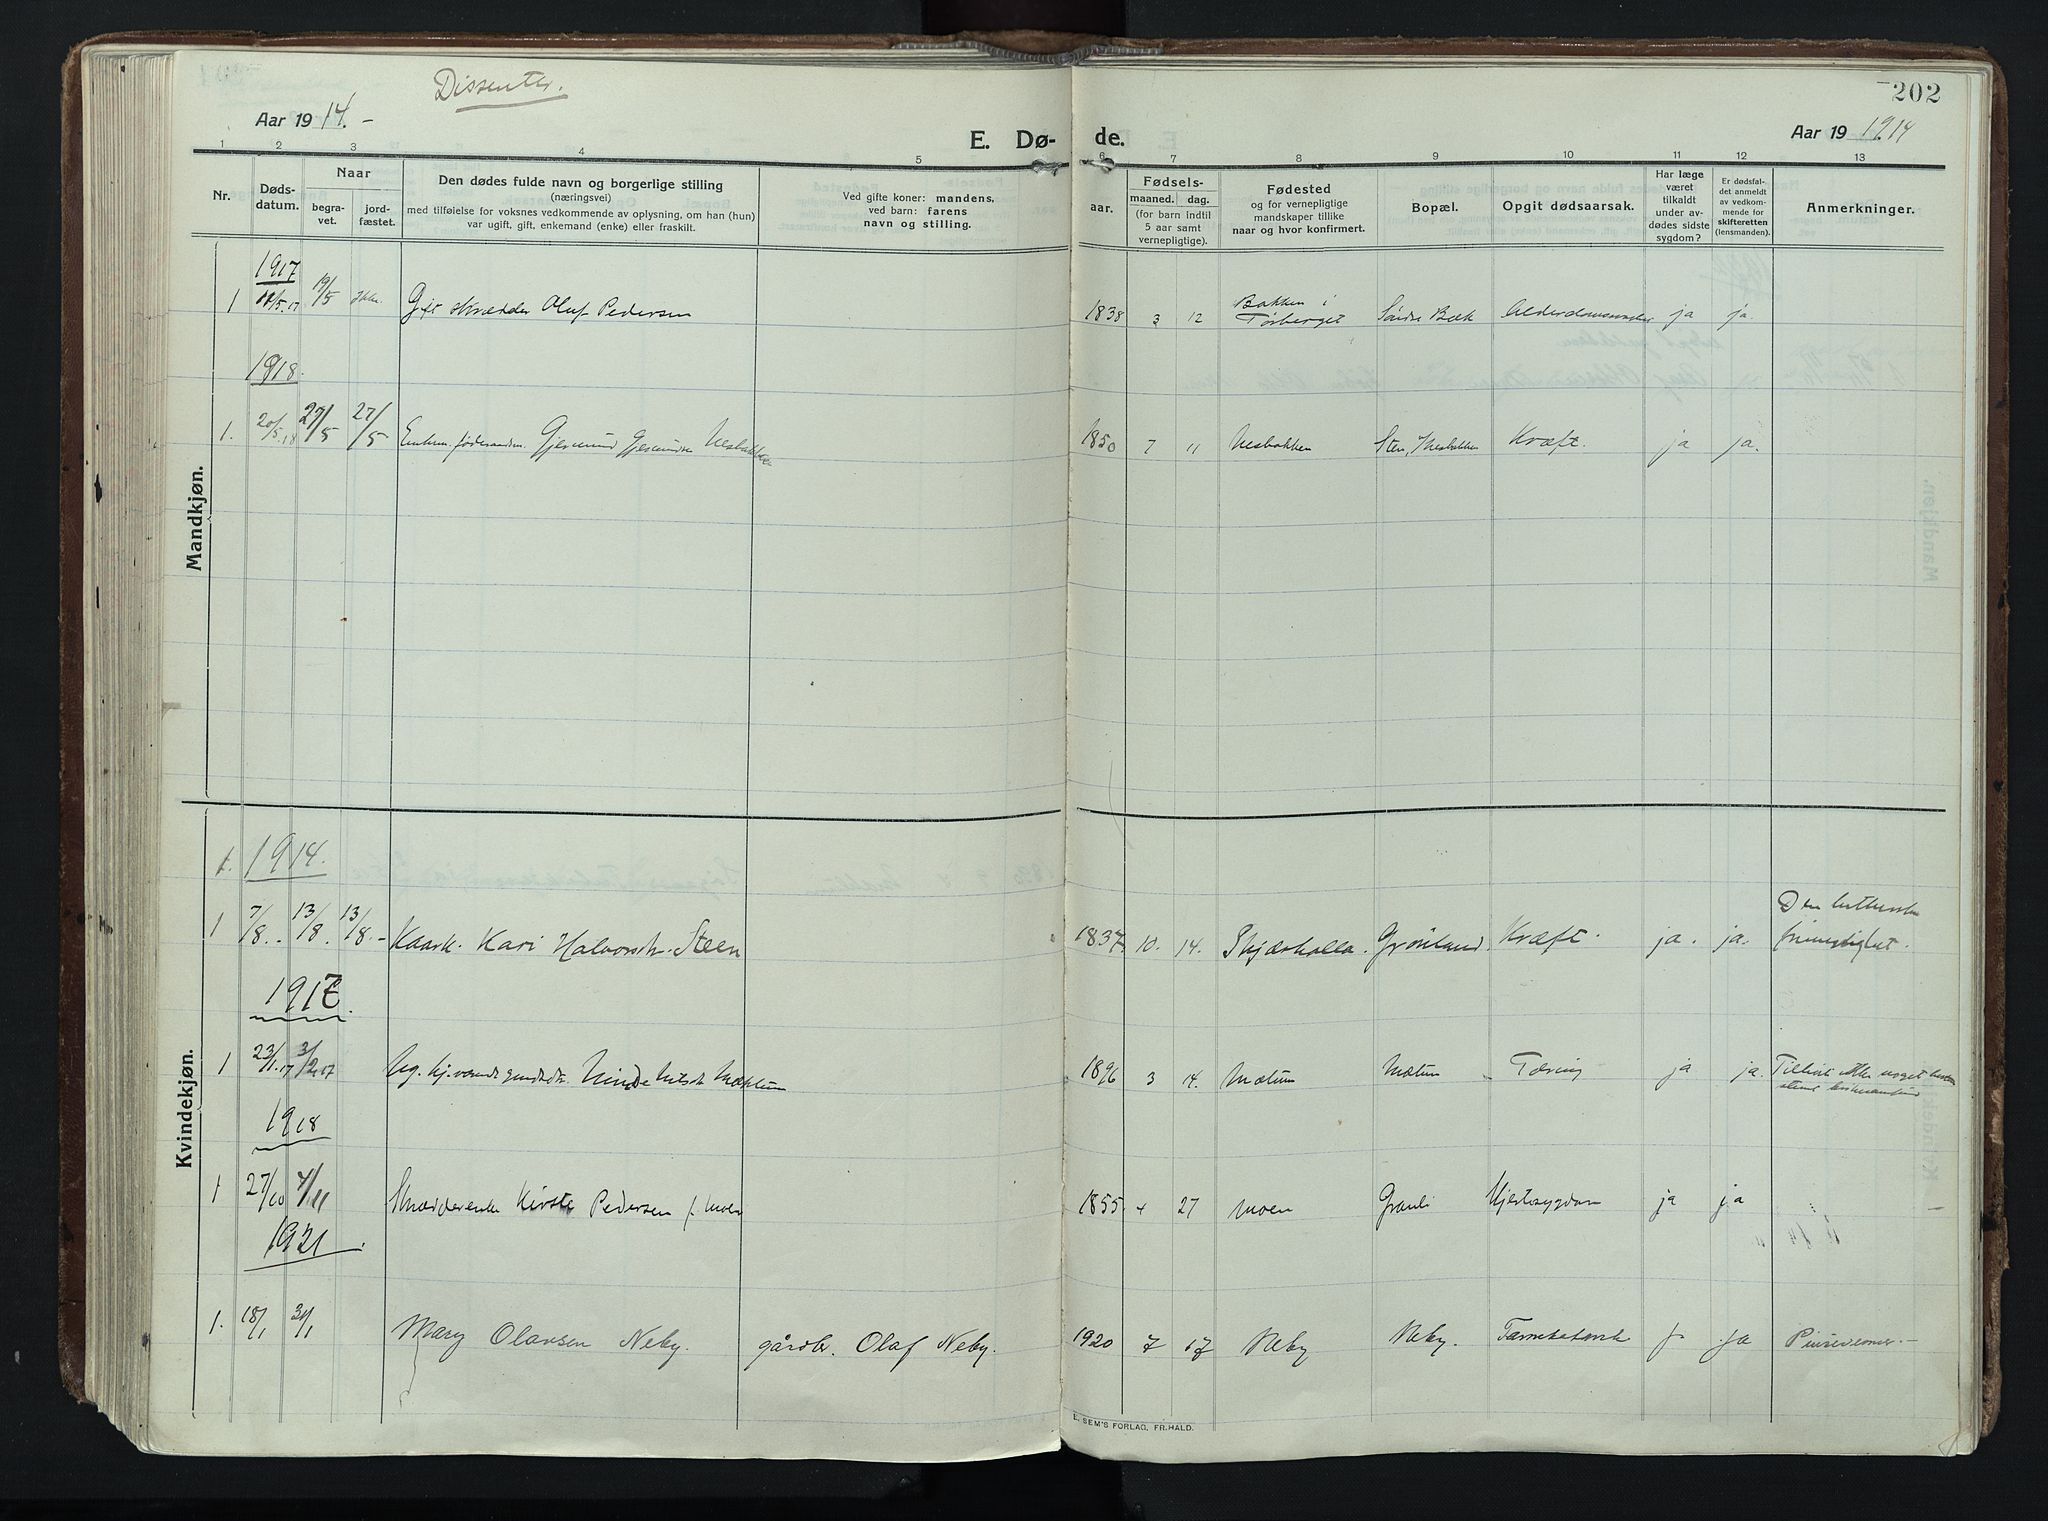 Dissenter.
202
Aar 19 14. -
Aar 19 1914
E. Dø- de.
1 2 3 4 5 6 7 8 9 10 11 12 13
Nr.
Døds-
datum.
Naar
begra-
vet.
jord-
fæstet.
Den dødes fulde navn og borgerlige stilling
(næringsvei)
med tilføielse for voksnes vedkommende av oplysning, om han (hun)
var ugift, gift, enkemand (enke) eller fraskilt.
Ved gifte koner: mandens,
ved barn: farens
navn og stilling.
Fødsels-
aar.
maaned.
dag.
(for barn indtil
5 aar samt
vernepligtige).
Fødested
og for vernepligtige
mandskaper tillike
naar og hvor konfirmert.
Bopæl.
Opgit dødsaarsak.
Har læge
været
tilkaldt
under av-
dødes sidste
sygdom?
Er dødsfal-
det anmeldt
av vedkom-
mende for
skifteretten
(lensmanden).
Anmerkninger.
Mandkjøn.
1917
1 /5.17 19/5 Gift skrædder Oluf Pedersen 1838 3 12 Bakken i
Tørberget Søndre Bæk ja ja.
1918.
1. 20/5.18 27/5 27/5 Gjermund Gjermundsen Nesbakken 1850 7 11 Nesbakken Sten, Nesbakken Kræft. ja ja.
Kvindekjøn.
1. 1914.
1 7/8.- 13/8. 13/8.- Kaark. Kari Halvorsdtr. Steen 1837. 10. 14. Skjærholla. Grønland. Kræft. ja. ja. Den lutherske
frimenighet.
1917
1 23/1.17 3/2.17 Ug. 1896 3 14. Mætum Mætum Tæring ja ja. Tilhørte ikke noget
1918
1 27/10 4/11 Skrædderenke Kirste Pedersen f. Moen 1855. 4 27 Moen Hjertesygdom ja ja
1921
1. 18/1 30/1 Mary Olavsen Neby. gårdbr. Olaf Neby. 1920 7 17 Neby Neby. ja Pinsevenner. -
E. SEM'S FORLAG, FR.HALD.